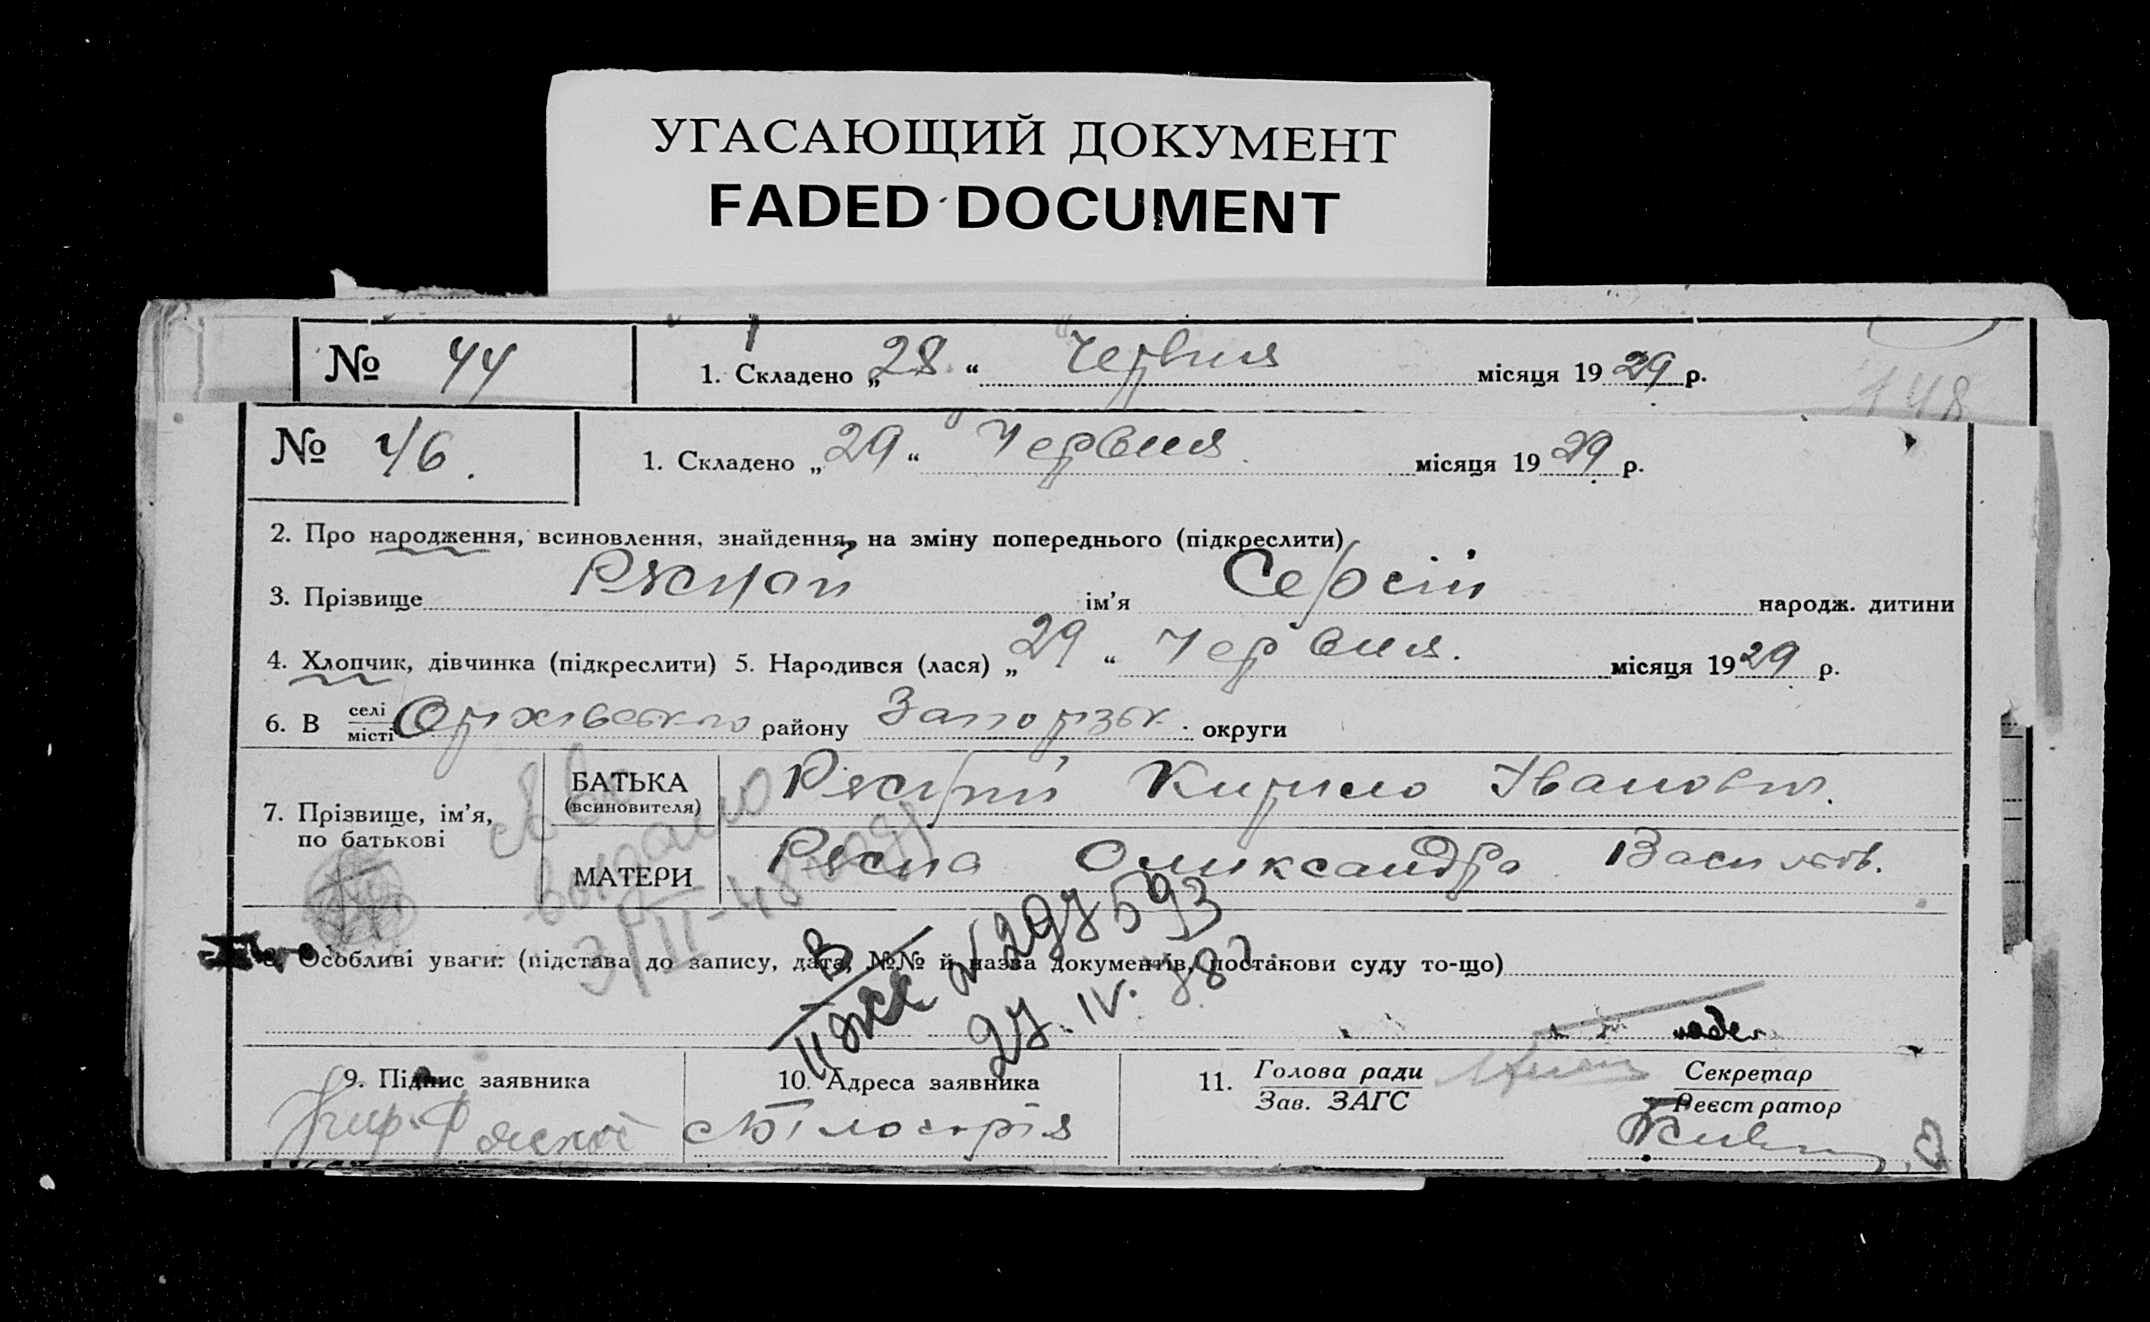 УГАСАЮЩИЙ ДОКУМЕНТ
FADED DOCUMENT
№ 44 1. Складено „28“ Червня місяця 1929 р.
148
№ 46. 1. Складено „29“ Червня місяця 1929 р.
2. Про народження, всиновлення, знайдення, на зміну попереднього (підкреслити)
3. Прізвище ім’я Сергій народж. дитини
4. Хлопчик, дівчинка (підкреслити) 5. Народився (лася) „29“ Червня. місяця 1929 р.
6. В селі місті Оріхівського району Запорізьк. округи
7. Прізвище, ім’я, по батькові
БАТЬКА (всиновителя) Кирило Іванович.
МАТЕРИ Рясна Олександра Васильов.
3/II-48
Особливі уваги: (підстава до запису, дата, №№ й назва документів, постанови суду то-що)
II ЖС № 297593
27.IV.88
9. Підпис заявника 10. Адреса заявника 11. Голова ради Зав. ЗАГС Секретар Реєстратор
Білогіря